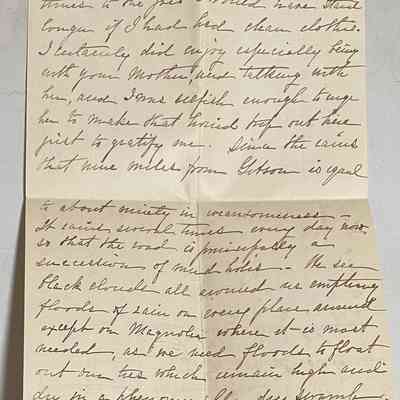 times to the free I would have staid
longer if I had had clean clothes.
I certainly did enjoy especially being
with your Mother, and talking with
her, and I was selfish enough to urge
her to make that horrid trip out here
just to gratify me. Since the rains
that nine miles from Gibson is equal
to about ninety in wearisomeness -
It rains several times every day now,
so that the road is principally a
succession of mud holes - We see
black clouds all around us emptying
floods of rain on every place around
except on Magnolia where it is most
needed, as we need floods to float
out our ties which remain high and
dry in a phenomenally dry swamp